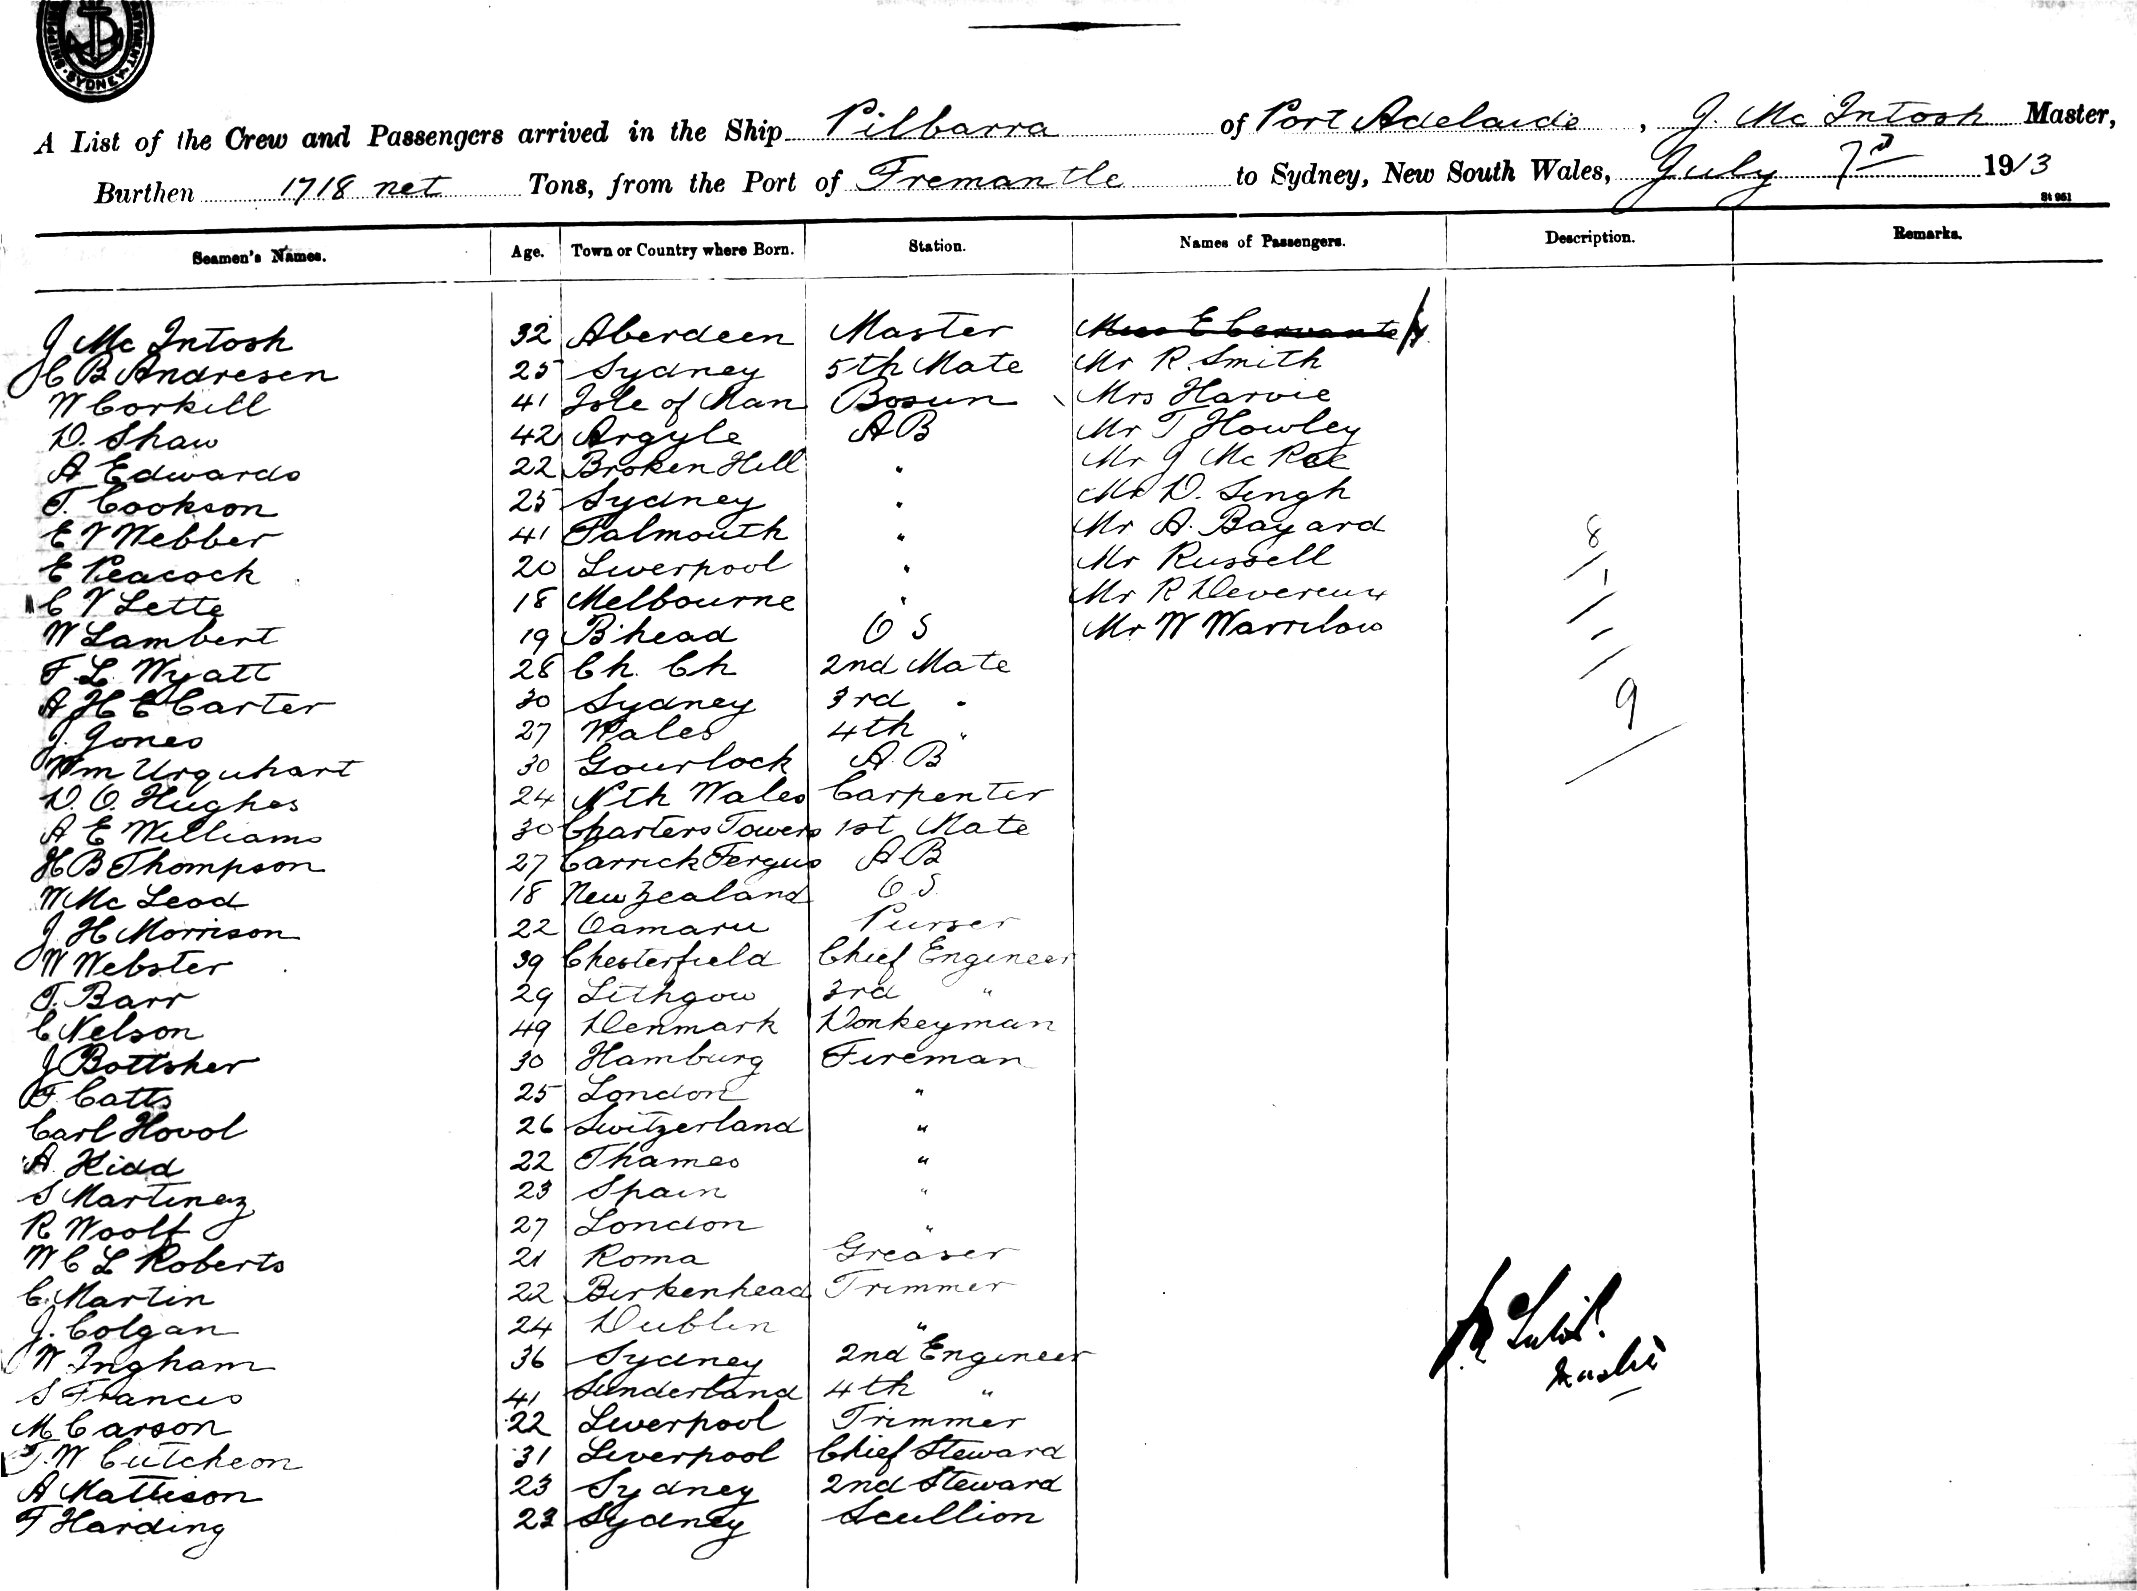 SYDNEY
A List of the Crew and Passengers arrived in the Ship Pilbarra of Port Adelaide, J. Mc Intosh Master,
Burthen 1718 net Tons, from the Port of Fremantle to Sydney, New South Wales, July 7th 1913
St 961
Seamen's Names. Age. Town or Country where Born. Station. Names of Passengers. Description. Remarks.
J Mc Intosh 32 Aberdeen Master Miss E Cervante
C B Andresen 25 Sydney 5th Mate Mr R. Smith
W Corkill 41 Isle of Man Bosun Mrs Harvie
D. Shaw 42 Argyle A B Mr T Howley
A Edwards 22 Broken Hill " Mr J Mc Rae
T. Cookson 25 Sydney " Mr D. Singh
E V Webber 41 Falmouth " Mr A. Bayard 8
E Peacock 20 Liverpool " Mr Russell 1
C V Lette 18 Melbourne " Mr R Devereux
W Lambert 19 B'head O S Mr W Warrilow
F. L. Wyatt 28 Ch. Ch 2nd Mate
A H E Carter 30 Sydney 3rd " 9
J. Jones 27 Wales 4th "
Wm Urquhart 30 Gourlock A. B
D. O. Hughes 24 Nth Wales Carpenter
A E Williams 30 Charters Towers 1st Mate
H B Thompson 27 Carrick Fergus A B
W Mc Leod 18 New Zealand O. S.
J. H Morrison 22 Oamaru Purser
W Webster 39 Chesterfield Chief Engineer
T. Barr 29 Lithgow 3rd "
C Nelson 49 Denmark Donkeyman
J Bottsher 30 Hamburg Fireman
F. Catts 25 London "
Carl Hovol 26 Switzerland "
A. Kidd 22 Thames "
S Martinez 23 Spain "
R Woolf 27 London "
W C L Roberts 21 Roma Greaser
C. Martin 22 Birkenhead Trimmer
J. Colgan 24 Dublin "
W Ingham 36 Sydney 2nd Engineer
S Francis 41 Sunderland 4th "
M Carson 22 Liverpool Trimmer
T. W Cutcheon 31 Liverpool Chief Steward
A Mattison 23 Sydney 2nd Steward
F Harding 23 Sydney Scullion